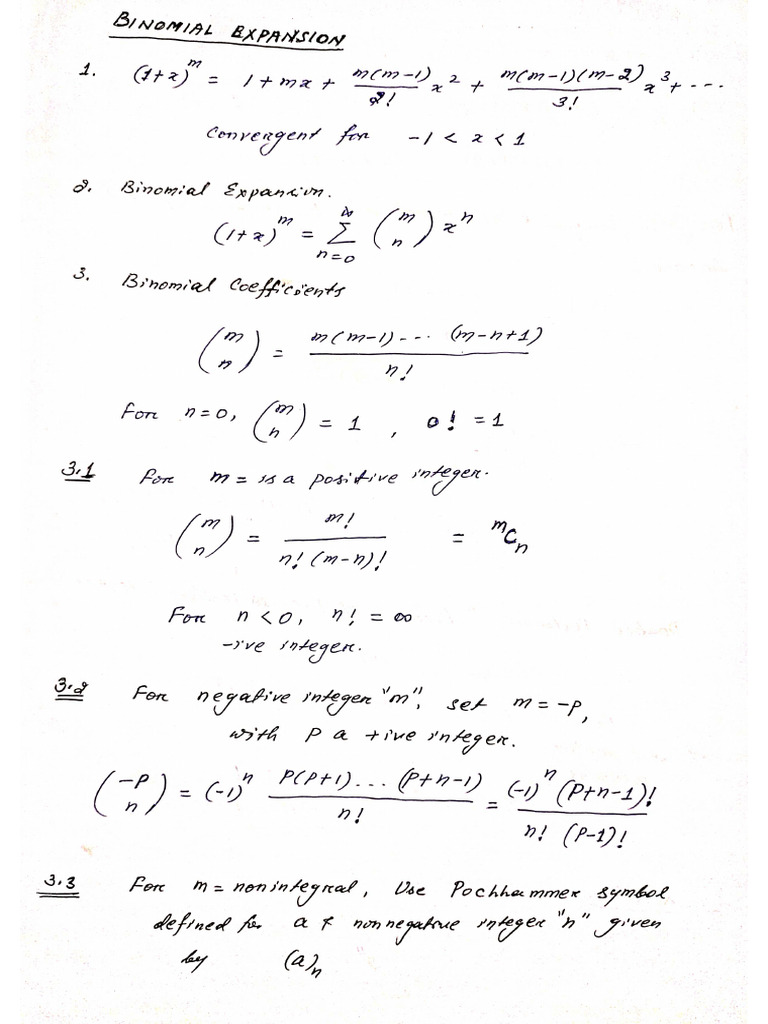 BINOMIAL EXPANSION
1. (1+x)^m = 1 + mx + m(m-1)/2! x^2 + m(m-1)(m-2)/3! x^3 + ...
Convergent for -1 < x < 1
2. Binomial Expansion.
(1+x)^m = ∑_{n=0}^{∞} (m n) x^n
3. Binomial Coefficients
(m n) = m(m-1)... (m-n+1) / n!
For n=0, (m n) = 1 , 0! = 1
3.1 For m = is a positive integer.
(m n) = m! / n! (m-n)! = ^mC_n
For n < 0, n! = ∞
-ive integer.
3.2 For negative integer "m", set m = -p,
with p a +ive integer.
(-p n) = (-1)^n p(p+1)... (p+n-1) / n! = (-1)^n (p+n-1)! / n! (p-1)!
3.3 For m = nonintegral, Use Pochhammer symbol
defined for a & nonnegative integer "n" given
by (a)_n